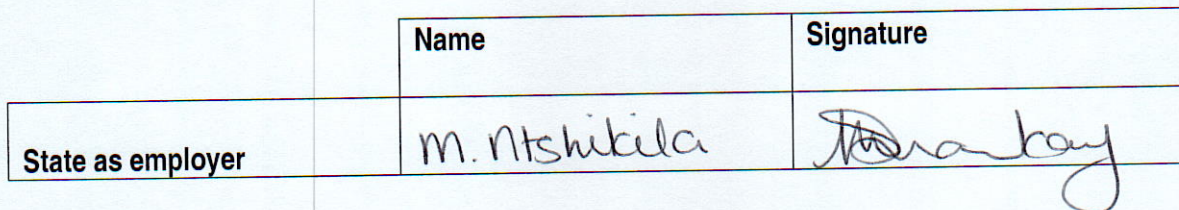 Name Signature
State as employer M. Ntshikila